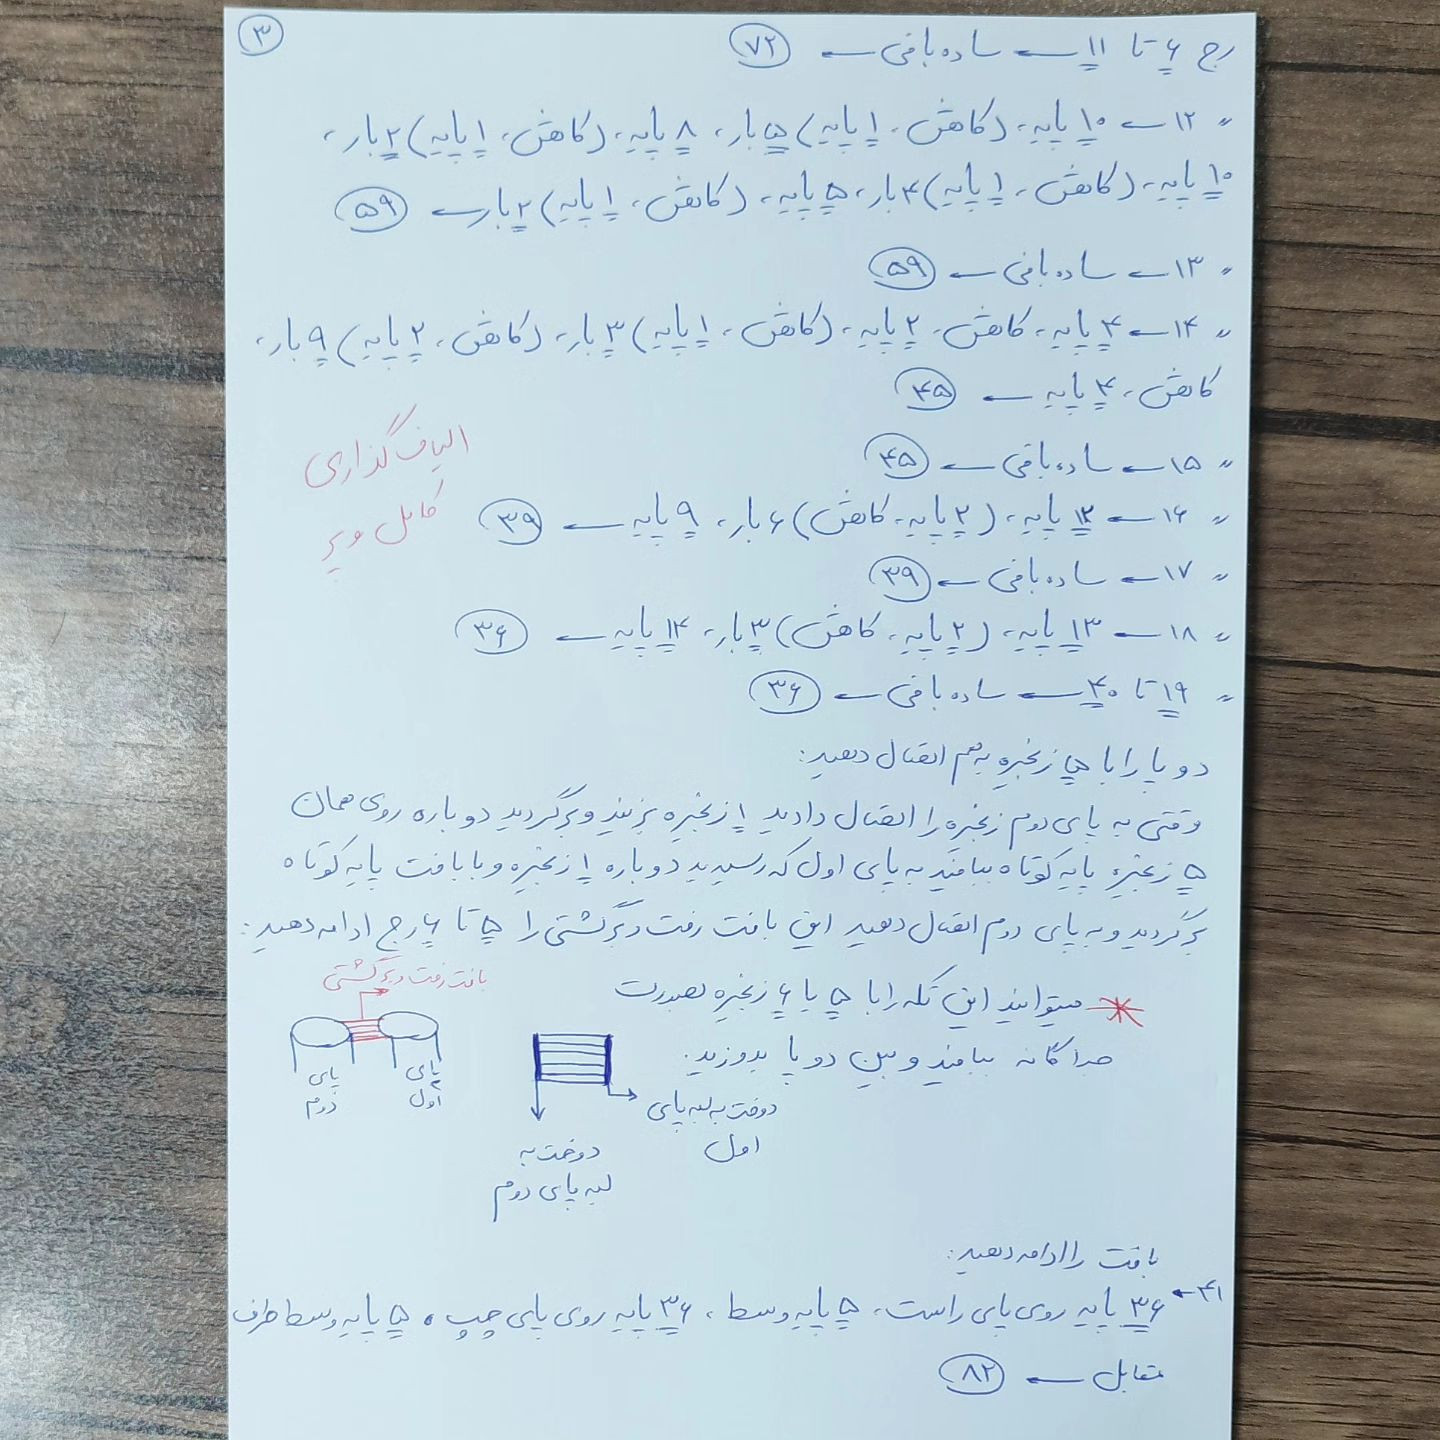 ۳
رج ۶ تا ۱۱ ← ساده بافی ← ۷۲
" ۱۲ ← ۱۰ پایه، (کاهش، ۱ پایه) ۵ بار، ۸ پایه، (کاهش، ۱ پایه) ۲ بار،
۱۰ پایه، (کاهش، ۱ پایه) ۴ بار، ۵ پایه، (کاهش، ۱ پایه) ۲ بار ← ۵۹
" ۱۳ ← ساده بافی ← ۵۹
" ۱۴ ← ۴ پایه، کاهش، ۲ پایه، (کاهش، ۱ پایه) ۳ بار، (کاهش، ۲ پایه) ۹ بار،
کاهش، ۴ پایه ← ۴۵
" ۱۵ ← ساده بافی ← ۴۵
الیاف گذاری
کامل و پر
" ۱۶ ← ۱۲ پایه، (۲ پایه، کاهش) ۶ بار، ۹ پایه ← ۳۹
" ۱۷ ← ساده بافی ← ۳۹
" ۱۸ ← ۱۳ پایه، (۲ پایه، کاهش) ۳ بار، ۱۴ پایه ← ۳۶
" ۱۹ تا ۴۰ ← ساده بافی ← ۳۶
دو پا را با ۵ زنجیره به هم اتصال دهید:
وقتی به پای دوم زنجیره را اتصال دادید ۱ زنجیره بزنید و برگردید دوباره روی همان
۵ زنجیره پایه کوتاه ببافید به پای اول که رسیدید دوباره ۱ زنجیره و با بافت پایه کوتاه
برگردید و به پای دوم اتصال دهید این بافت رفت و برگشتی را ۵ تا ۶ رج ادامه دهید:
میتوانید این تکه را با ۵ یا ۶ زنجیره بصورت
جداگانه ببافید و بین دو پا بدوزید.
بافت رفت و برگشتی
پای
اول
پای
دوم
دوخت به لبه پای
اول
دوخت به
لبه پای دوم
بافت را ادامه دهید:
۴۱ ← ۳۶ پایه روی پای راست، ۵ پایه وسط، ۳۶ پایه روی پای چپ، ۵ پایه وسط طرف
مقابل ← ۸۲